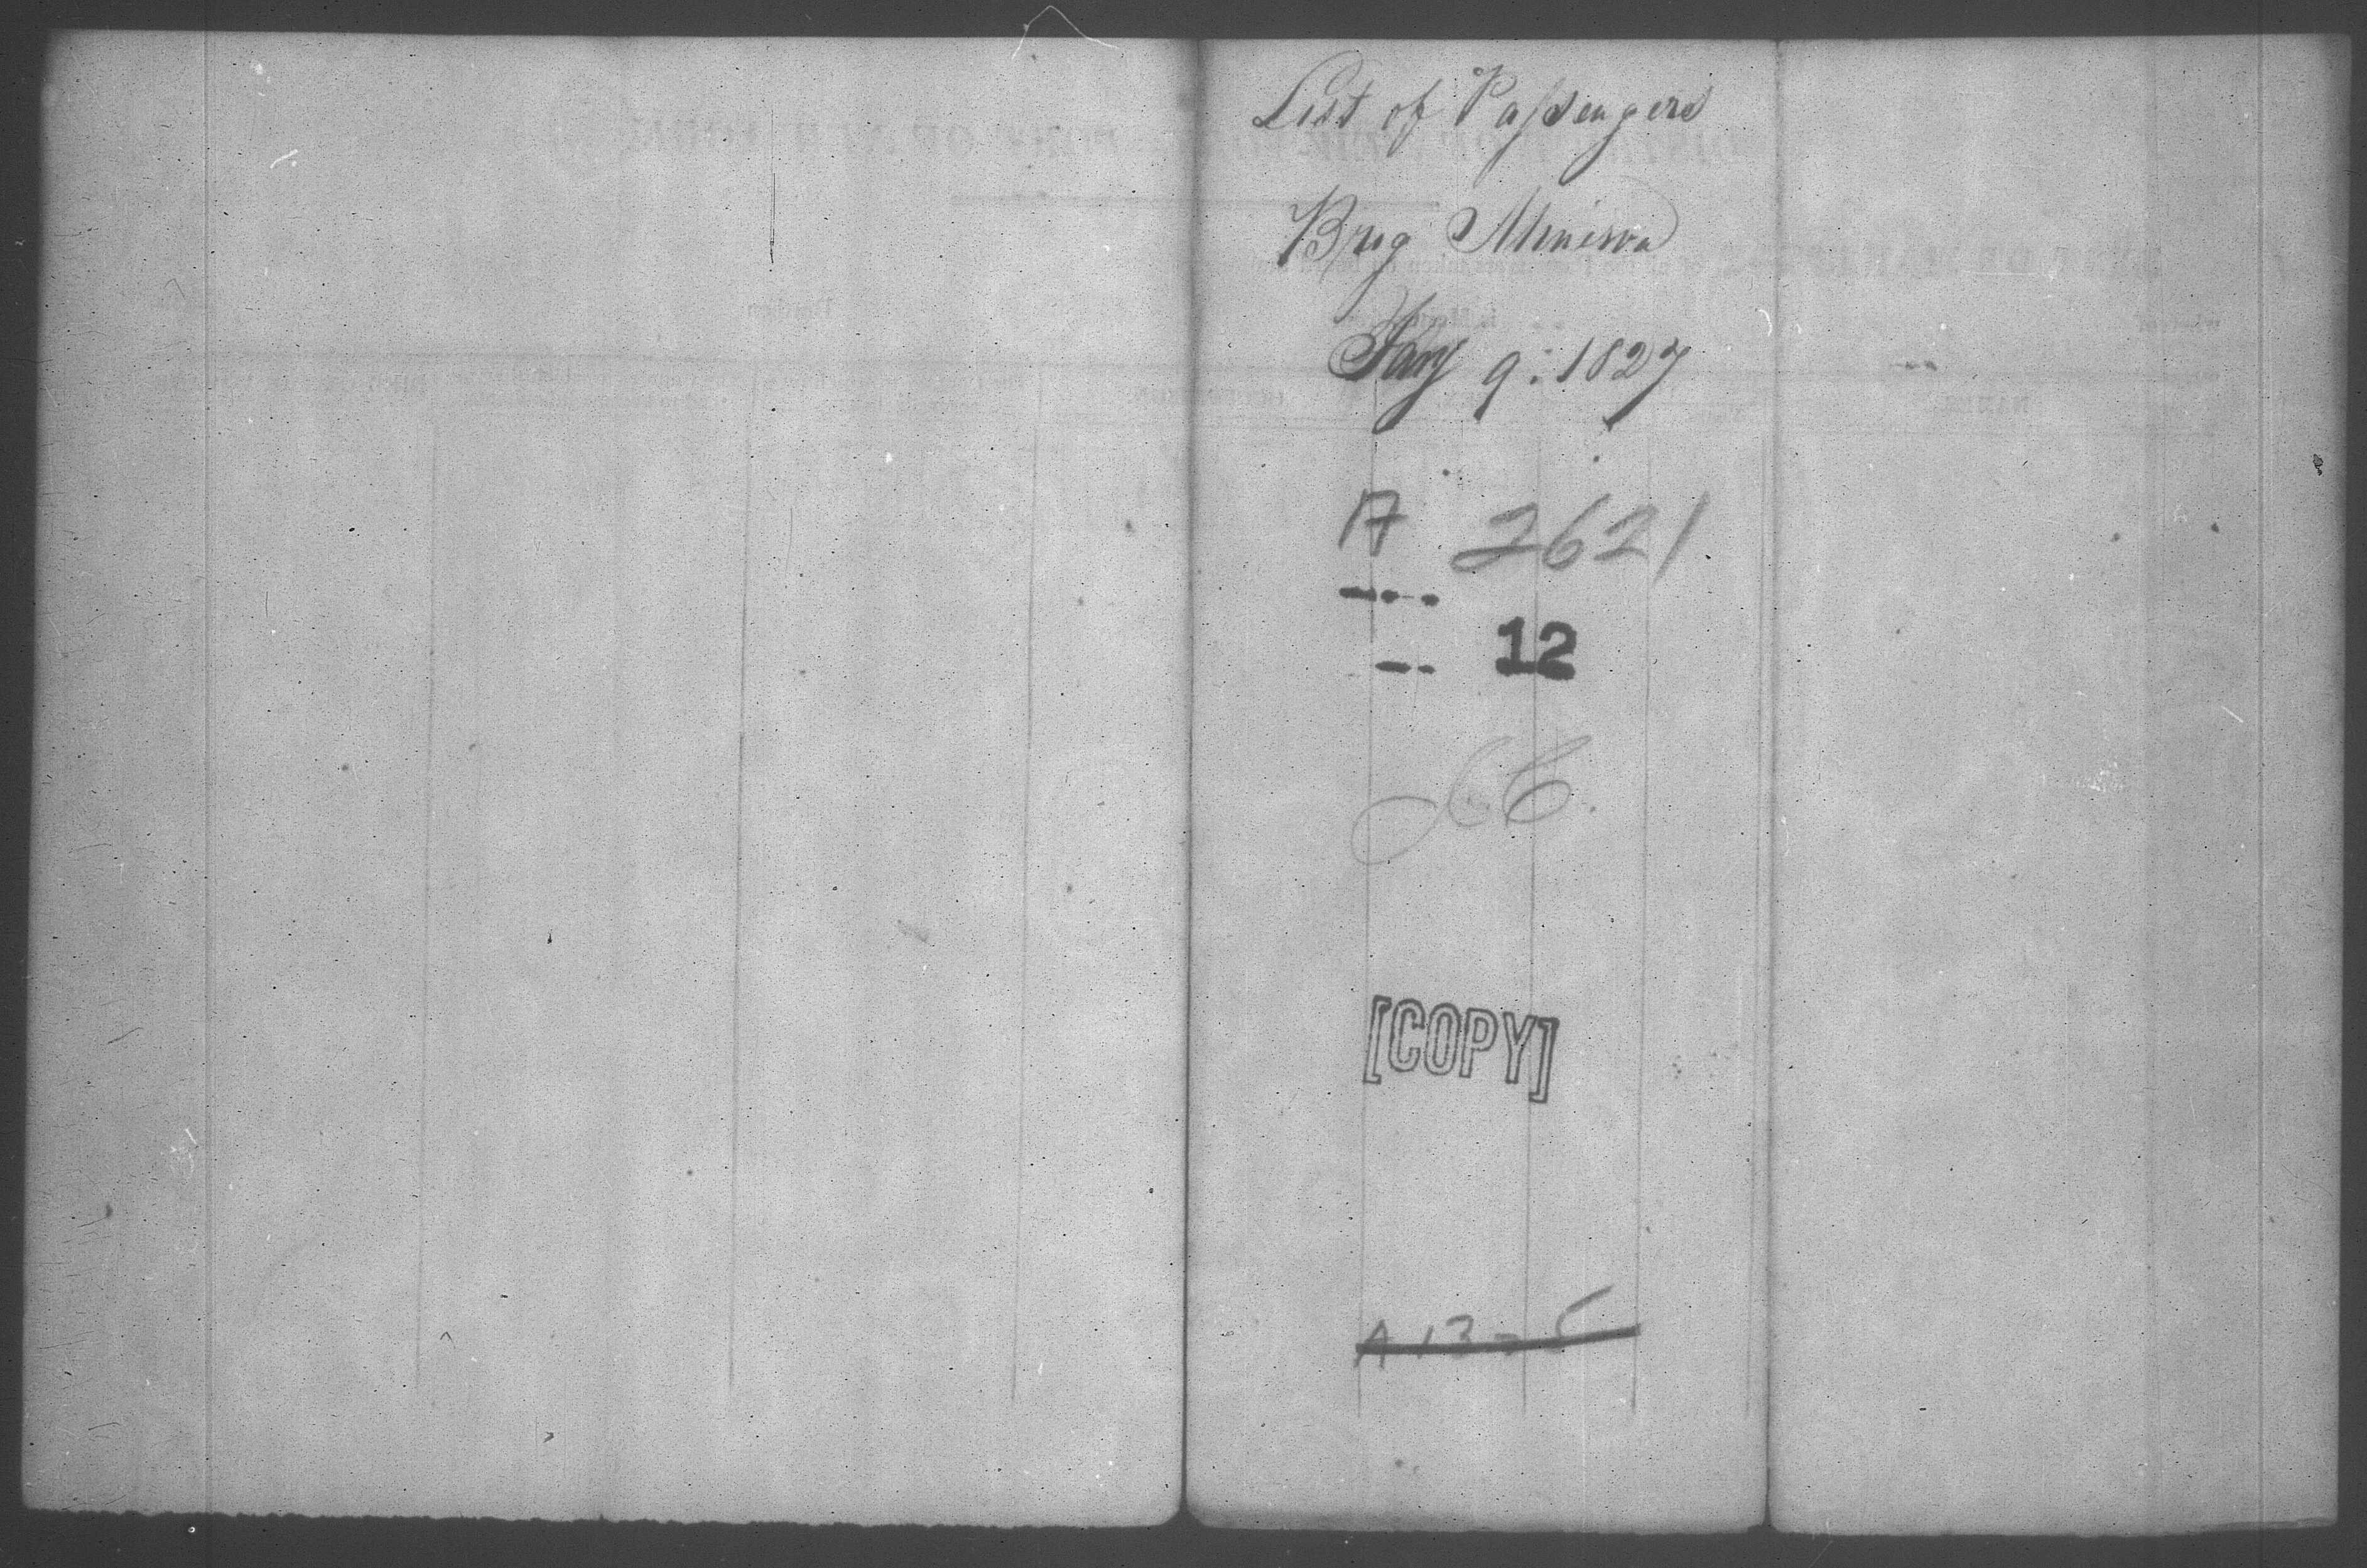 List of Passengers
Brig Minerva
Jany 9: 1827
A 2621
12
[COPY]
A 13 - 5